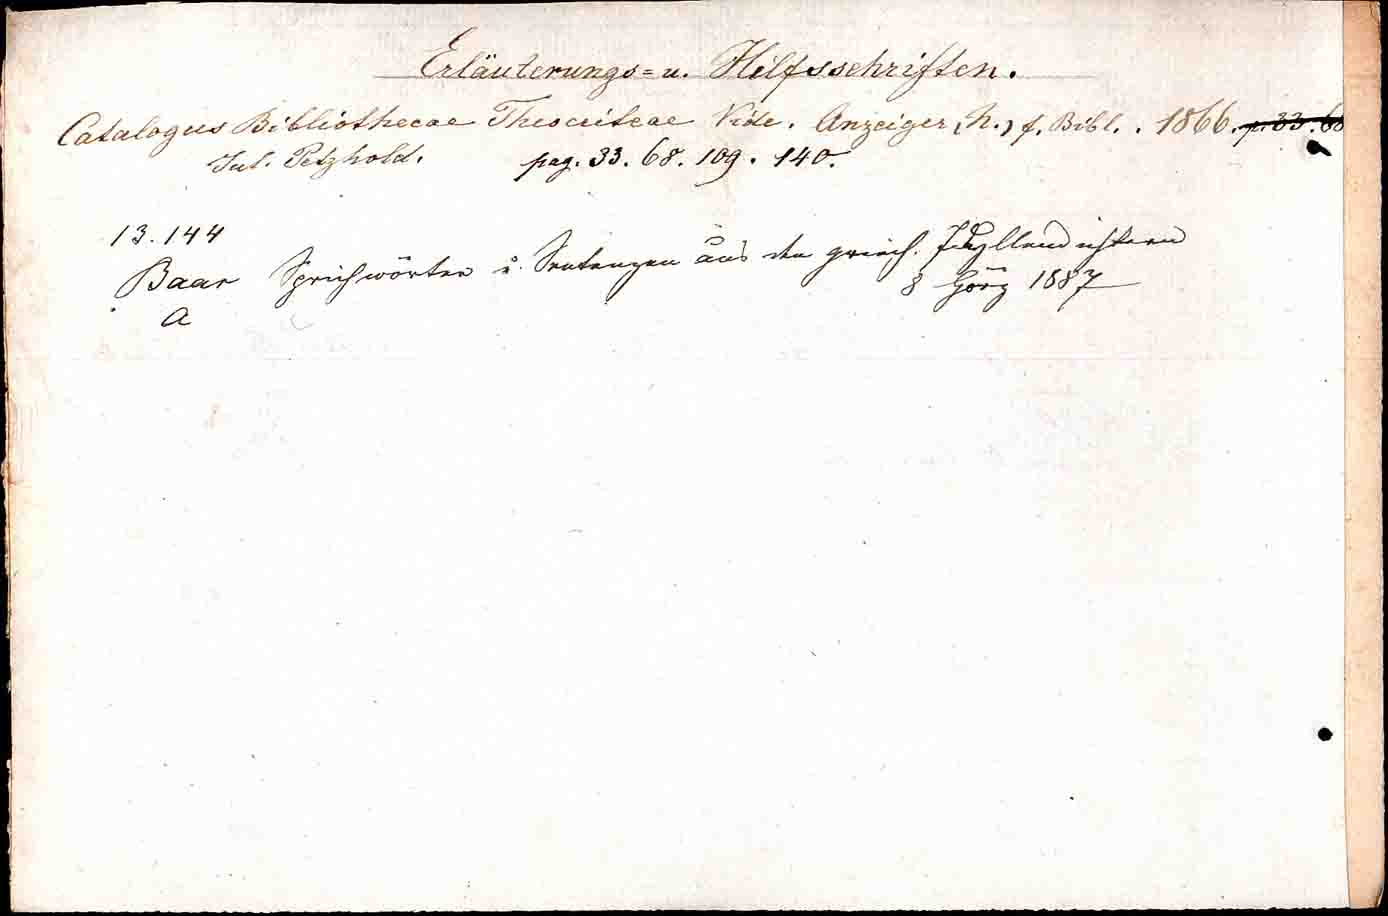 Erläuterungs=u. Hilfsschriften.
Catalogus Bibliothecae Theocriteae Vide. Anzeiger, (N.) f. Bibl.. 1866. p. 33. 68
Jul. Petzhold. pag. 33. 68. 109. 140.
13.144
Baar Sprichwörter u. Sentenzen aus den griech. Idyllendichtern
8 Görz 1887
A